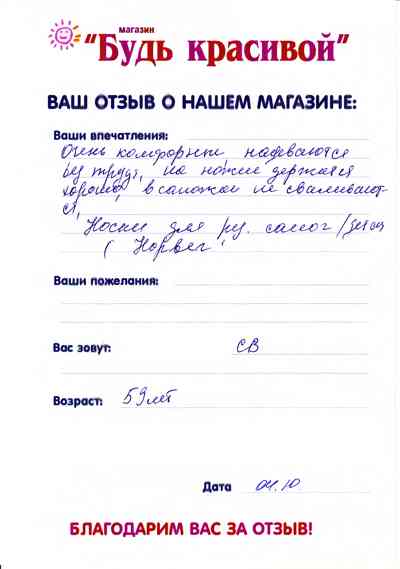 магазин
"Будь красивой"
ВАШ ОТЗЫВ О НАШЕМ МАГАЗИНЕ:
Ваши впечатления:
Очень комфортные надеваются
без труда, на ножке держатся
хорошо, в сапожке не сваливают-
ся,
Носки для рез. сапог
( Норвег
Ваши пожелания:
Вас зовут: СВ
Возраст: 59 лет
Дата 04.10
БЛАГОДАРИМ ВАС ЗА ОТЗЫВ!